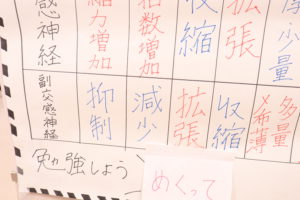 感神経 縮力増加 拍数増加 収縮 拡張 少量
副交感神経 抑制 減少 拡張 収縮 多量 希薄
勉強しよう
めくって